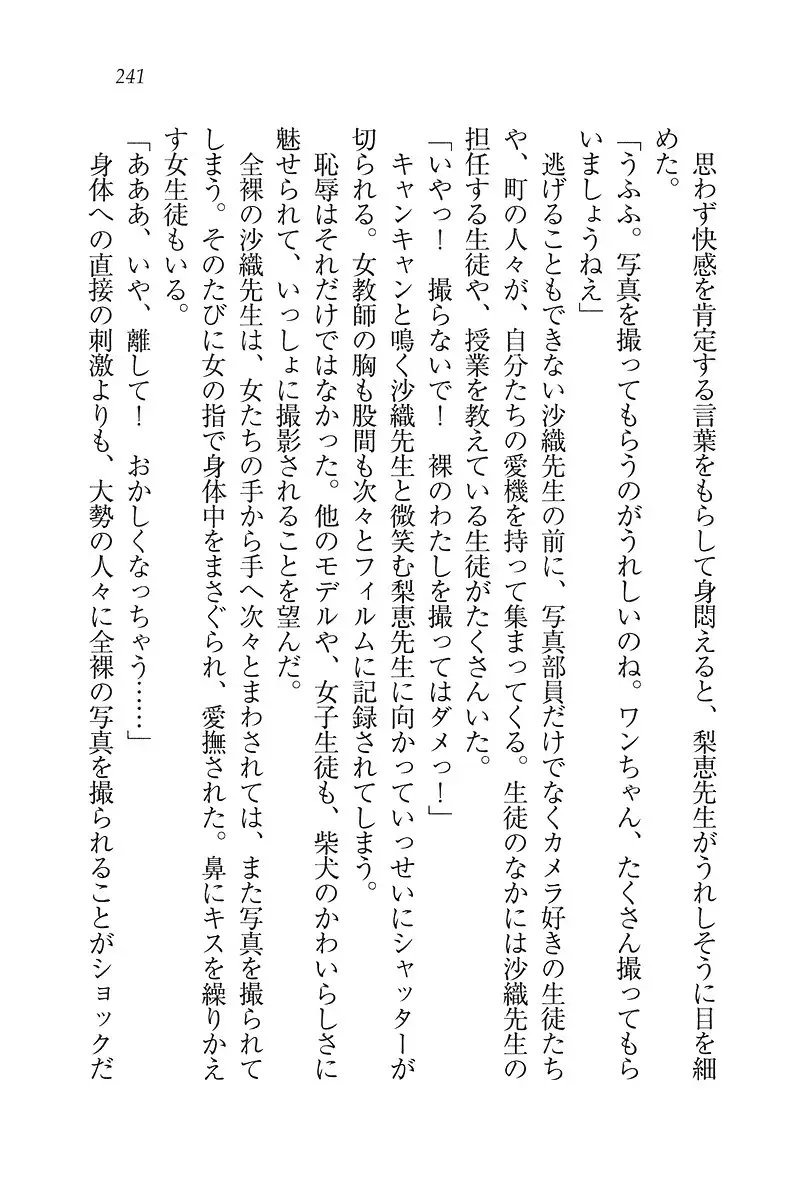 241
　思わず快感を肯定する言葉をもらして身悶えると、梨恵先生がうれしそうに目を細
めた。
「うふふ。写真を撮ってもらうのがうれしいのね。ワンちゃん、たくさん撮ってもら
いましょうねえ」
　逃げることもできない沙織先生の前に、写真部員だけでなくカメラ好きの生徒たち
や、町の人々が、自分たちの愛機を持って集まってくる。生徒のなかには沙織先生の
担任する生徒や、授業を教えている生徒がたくさんいた。
「いやっ！　撮らないで！　裸のわたしを撮ってはダメっ！」
　キャンキャンと鳴く沙織先生と微笑む梨恵先生に向かっていっせいにシャッターが
切られる。女教師の胸も股間も次々とフィルムに記録されてしまう。
　恥辱はそれだけではなかった。他のモデルや、女子生徒も、柴犬のかわいらしさに
魅せられて、いっしょに撮影されることを望んだ。
　全裸の沙織先生は、女たちの手から手へ次々とまわされては、また写真を撮られて
しまう。そのたびに女の指で身体中をまさぐられ、愛撫された。鼻にキスを繰りかえ
す女生徒もいる。
「あああ、いや、離して！　おかしくなっちゃう……」
　身体への直接の刺激よりも、大勢の人々に全裸の写真を撮られることがショックだ